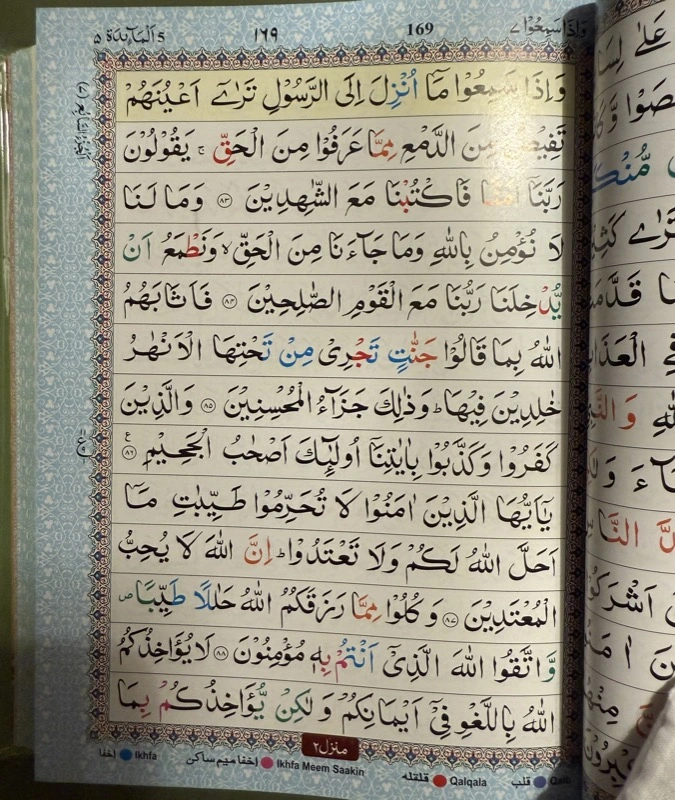 5 اَلْمَآئِدَة ٥ ١٦٩ 169 وَاِذَاسَمِعُوْا ٧
وَاِذَا سَمِعُوْا مَآ اُنْزِلَ اِلَى الرَّسُوْلِ تَرٰٓى اَعْيُنَهُمْ
تَفِيْضُ مِنَ الدَّمْعِ مِمَّا عَرَفُوْا مِنَ الْحَقِّ ۚ يَقُوْلُوْنَ
رَبَّنَآ اٰمَنَّا فَاكْتُبْنَا مَعَ الشّٰهِدِيْنَ ﴿٨٣﴾ وَمَا لَنَا
لَا نُؤْمِنُ بِاللّٰهِ وَمَا جَآءَنَا مِنَ الْحَقِّ ۙ وَنَطْمَعُ اَنْ
يُّدْخِلَنَا رَبُّنَا مَعَ الْقَوْمِ الصّٰلِحِيْنَ ﴿٨٤﴾ فَاَثَابَهُمُ
اللّٰهُ بِمَا قَالُوْا جَنّٰتٍ تَجْرِيْ مِنْ تَحْتِهَا الْاَنْهٰرُ
خٰلِدِيْنَ فِيْهَا ؕ وَذٰلِكَ جَزَآءُ الْمُحْسِنِيْنَ ﴿٨٥﴾ وَالَّذِيْنَ
كَفَرُوْا وَكَذَّبُوْا بِاٰيٰتِنَآ اُولٰٓئِكَ اَصْحٰبُ الْجَحِيْمِ ﴿٨٦﴾ ع
يٰٓاَيُّهَا الَّذِيْنَ اٰمَنُوْا لَا تُحَرِّمُوْا طَيِّبٰتِ مَآ
اَحَلَّ اللّٰهُ لَكُمْ وَلَا تَعْتَدُوْا ؕ اِنَّ اللّٰهَ لَا يُحِبُّ
الْمُعْتَدِيْنَ ﴿٨٧﴾ وَكُلُوْا مِمَّا رَزَقَكُمُ اللّٰهُ حَلٰلًا طَيِّبًا ۪
وَّاتَّقُوا اللّٰهَ الَّذِيْٓ اَنْتُمْ بِهٖ مُؤْمِنُوْنَ ﴿٨٨﴾ لَا يُؤَاخِذُكُمُ
اللّٰهُ بِاللَّغْوِ فِيْٓ اَيْمَانِكُمْ وَلٰكِنْ يُّؤَاخِذُكُمْ بِمَا
منزل ٢
اخفا Ikhfa اخفا میم ساکن Ikhfa Meem Saakin قلقلہ Qalqala قلب Qalb